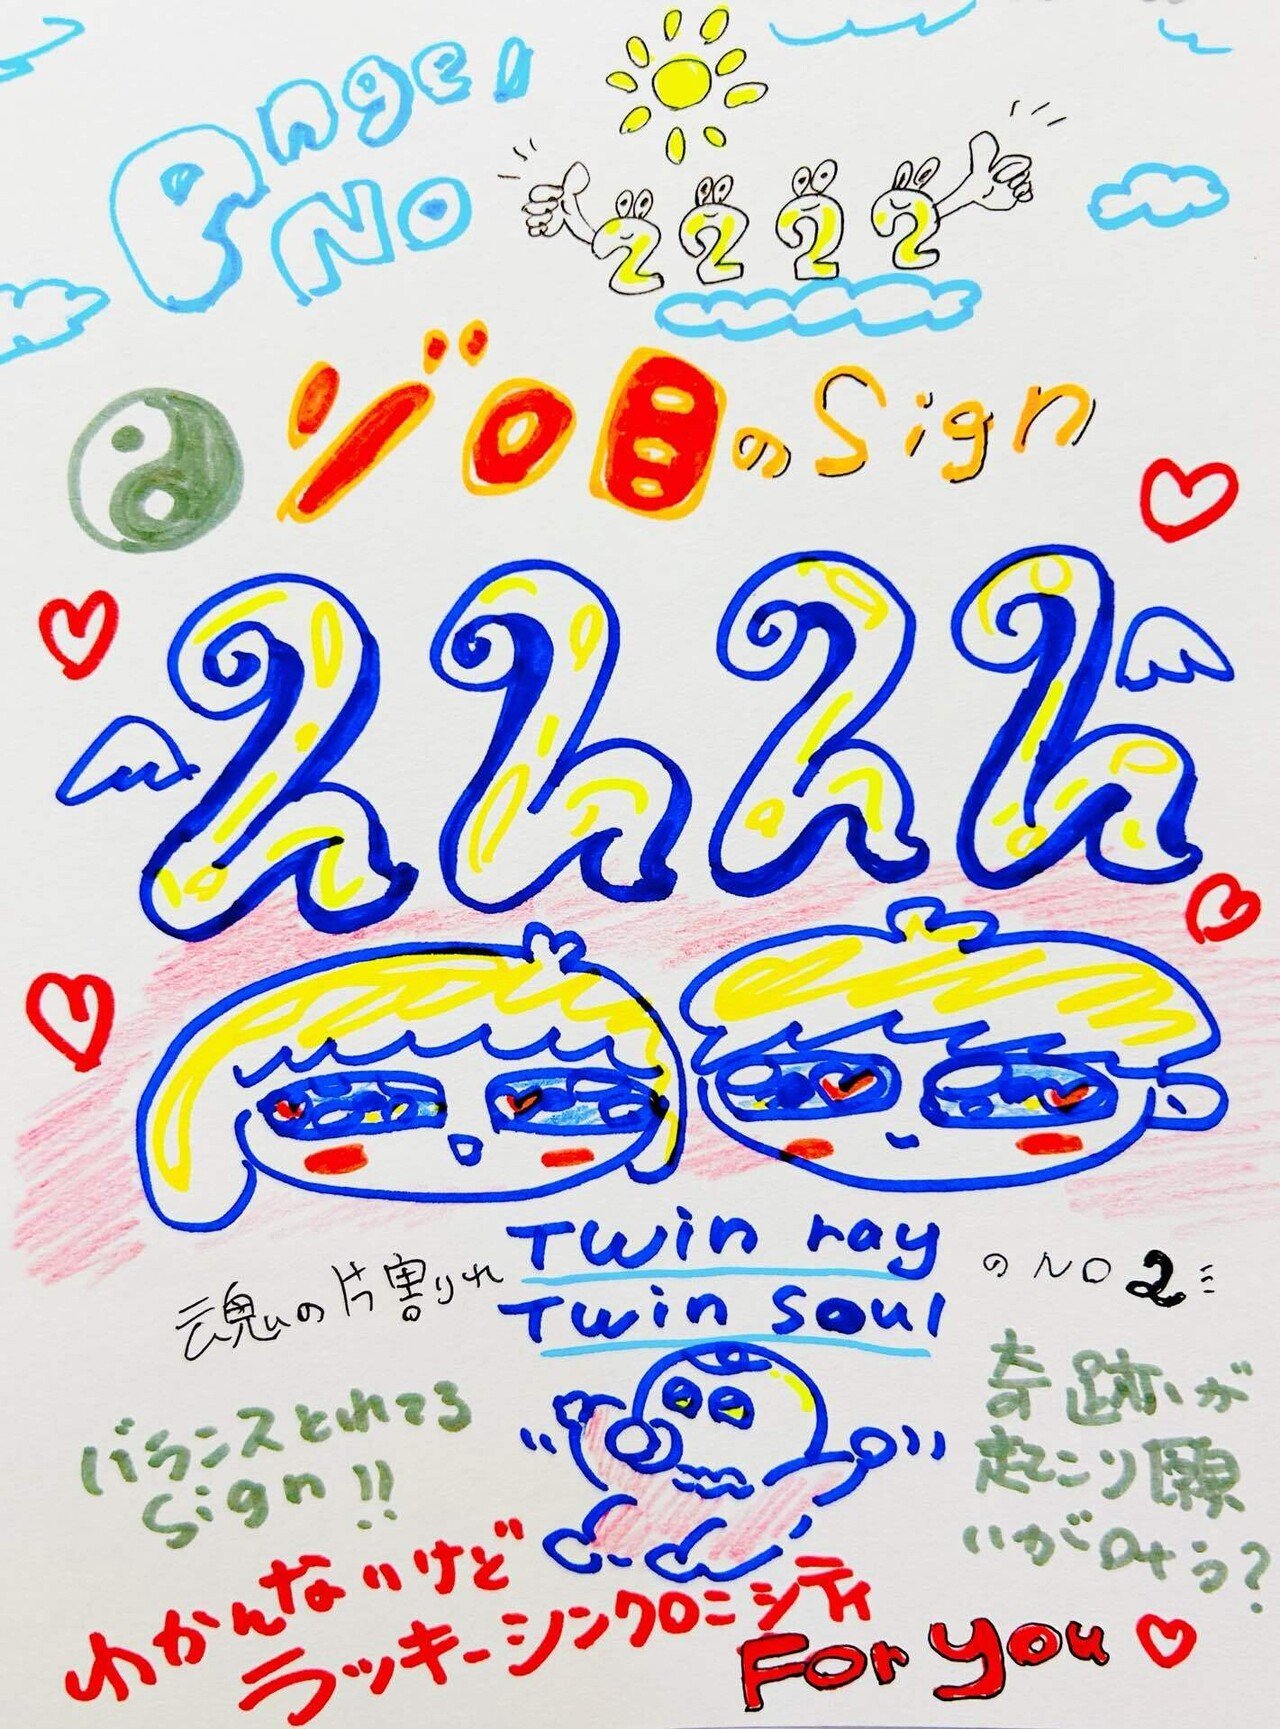 Angel
No
2222
ゾロ目のSign
2222
魂の片割れ
Twin ray
Twin soul
のNO 2
バランスとれてる
Sign!!
奇跡が
起こり願
いが叶う?
わかんないけど
ラッキーシンクロニシティ
For you